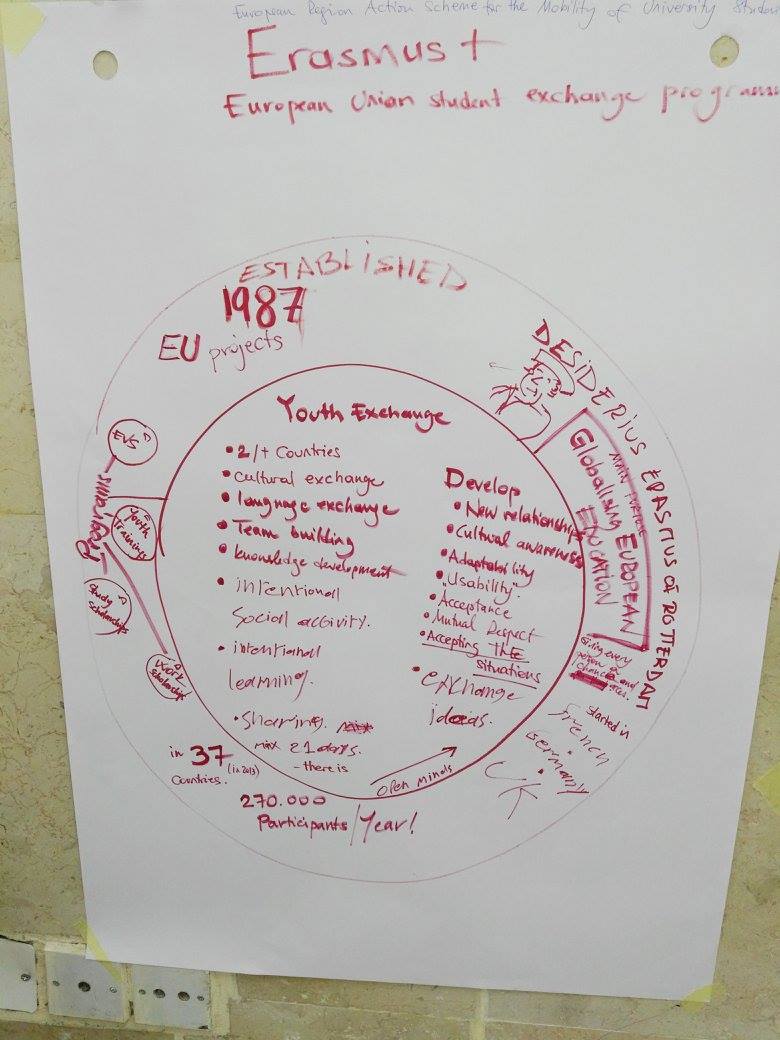 European Region Action Scheme for the Mobility of University Studen
Erasmus +
European Union student exchange programm
ESTABLISHED
1987
EU projects
DESIDERIUS ERASMUS OF ROTTERDAM
MAIN PURPOSE
Globalising EUROPEAN
EDUCATION
Giving every
person a
chance and
started in
French
Germany
UK
Programms
EVS
Youth
Trainings
Study
scholarships
Work
scholarship
in 37 (in 2013)
countries.
270.000
Participants/Year!
Youth Exchange
• 2/+ Countries
• cultural exchange
• language exchange
• Team building
• knowledge development
• intentionall
social activity.
• intentionall
learning.
• sharing.
max 21 days.
- there is
Develop
• New relationships
• Cultural awareness
• Adaptability
• "Usability"
• Acceptance
• Mutual Respect
• Accepting THE
situations
• exchange
ideas.
open minds